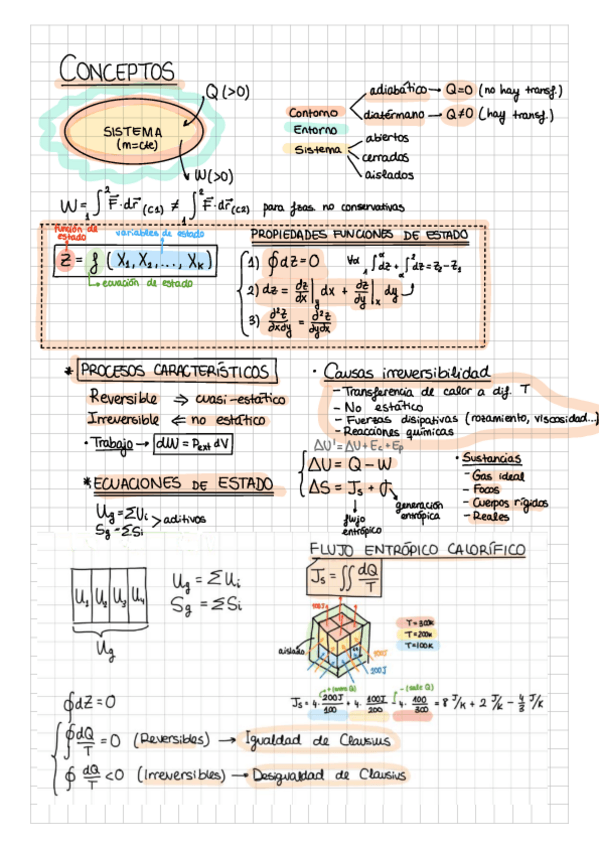 CONCEPTOS
Q (>0)
SISTEMA
(m=cte)
W (>0)
Contorno
adiabático → Q=0 (no hay transf.)
diatérmano → Q≠0 (hay transf.)
Entorno
Sistema
abiertos
cerrados
aislados
W = ₁∫² F⃗·dr⃗ (C1) ≠ ₁∫² F⃗·dr⃗ (C2) para fzas. no conservativas
función de estado
variables de estado
Z = f (X₁, X₂, ..., Xₖ)
ecuación de estado
PROPIEDADES FUNCIONES DE ESTADO
1) ∮dz = 0 ∀α ₁∫ᵅdz + ₐ∫²dz = Z₂ - Z₁
2) dz = dz/dx|y dx + dz/dy|x dy
3) ∂²z/∂x∂y = ∂²z/∂y∂x
* PROCESOS CARACTERÍSTICOS
Reversible ⇒ cuasi-estático
Irreversible ⇐ no estático
· Trabajo → dW = Pext dV
· Causas irreversibilidad
- Transferencia de calor a dif. T
- No estático
- Fuerzas disipativas (rozamiento, viscosidad...)
- Reacciones químicas
ΔU' = ΔU + Ec + Ep
ΔU = Q - W
ΔS = Js + σ
flujo entrópico
generación entrópica
· Sustancias
- Gas ideal
- Focos
- Cuerpos rígidos
- Reales
* ECUACIONES DE ESTADO
Ug = ΣUi
Sg = ΣSi
> aditivos
FLUJO ENTRÓPICO CALORÍFICO
Js = ∬ dQ/T
U₁ U₂ U₃ U₄
Ug
Ug = ΣUi
Sg = ΣSi
aislado
100J
200J
T = 300K
T = 200K
T = 100K
+ (entra Q)
- (sale Q)
Js = 4· 200J/100 + 4· 100J/200 - 4· 100/300 = 8 J/K + 2 J/K - 4/3 J/K
∮dz = 0
∮ dQ/T = 0 (Reversibles) → Igualdad de Clausius
∮ dQ/T < 0 (Irreversibles) → Desigualdad de Clausius